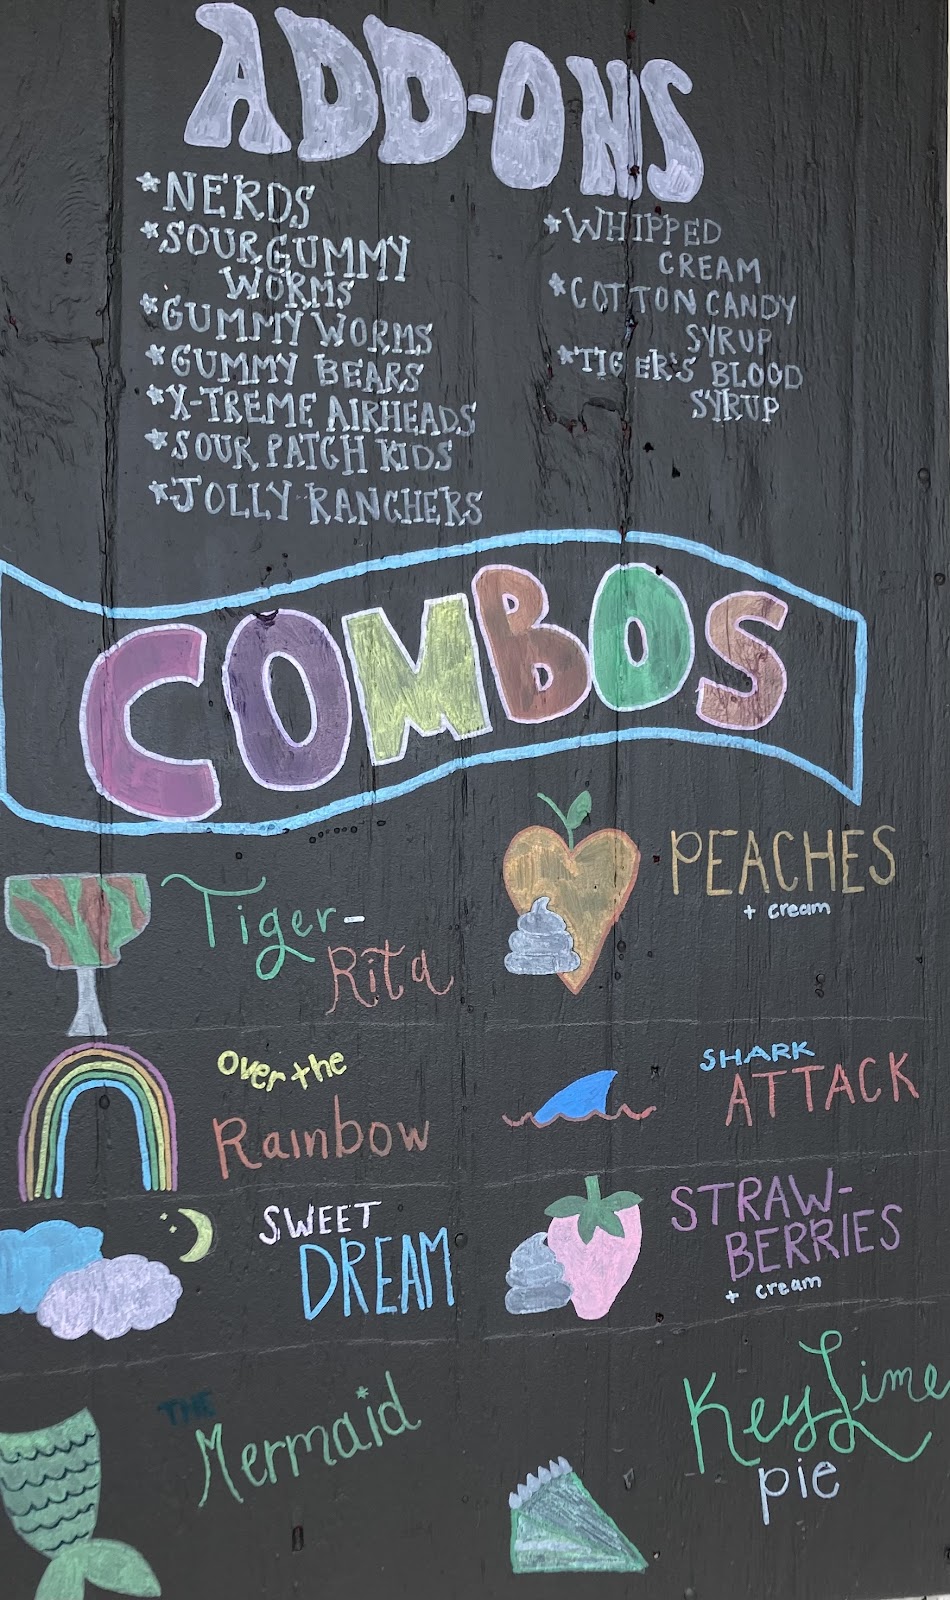 ADD-ONS
*NERDS
*SOUR GUMMY
WORMS
*GUMMY WORMS
*GUMMY BEARS
*X-TREME AIRHEADS
*SOUR PATCH KIDS
*JOLLY RANCHERS
*WHIPPED
CREAM
*COTTON CANDY
SYRUP
*TIGER'S BLOOD
SYRUP
COMBOS
Tiger-
Rita
PEACHES
+ cream
over the
Rainbow
SHARK
ATTACK
SWEET
DREAM
STRAW-
BERRIES
+ cream
THE
Mermaid
Key Lime
pie